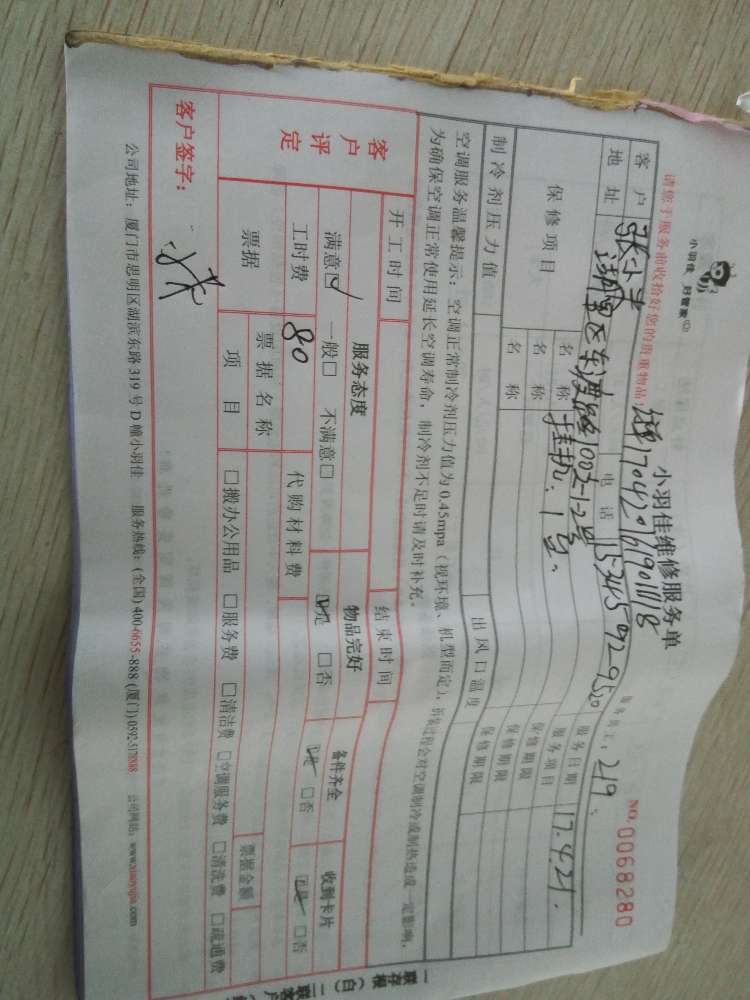 小羽佳 好管家
小羽佳维修服务单
NO. 0068280
请您于服务前收拾好您的贵重物品!
170420161901118
服务员工: 219
客户
电话
服务日期 17.4.21.
地址
服务项目
保修项目
名称 挂机. 1台.
保修期限
名称
保修期限
名称
保修期限
制冷剂压力值
出风口温度
空调服务温馨提示:空调正常制冷剂压力值为0.45mpa(视环境、机型而定),拆装过程会对空调制冷或制热造成一定影响,
为确保空调正常使用延长空调寿命,制冷剂不足时请及时补充。
开工时间
结束时间
客户评定
服务态度
物品完好
备件齐全
收到卡片
满意☑ 一般□ 不满意□
☑是 □否
☑是 □否
☑是 □否
工时费 80
代购材料费
票据
票据名称
票据金额
项目
□搬办公用品 □服务费 □清洁费 □空调服务费 □清洗费 □疏通费
客户签字:
公司地址:厦门市思明区湖滨东路319号D幢小羽佳 服务热线:(全国)400-6655-888 (厦门)0592-5178888 公司网站:www.xiaoyujia.com
一联存根(白)二联客户